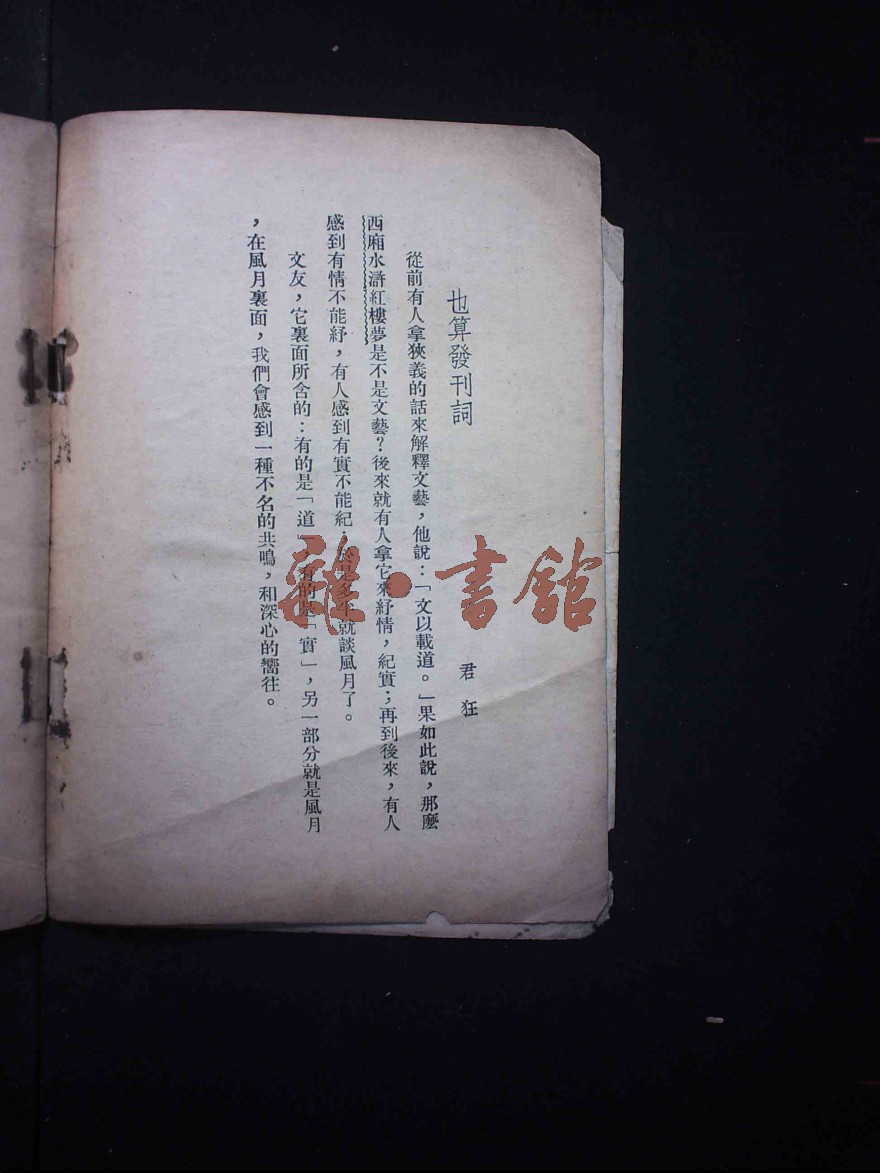 也算發刊詞
君狂
從前有人拿狹義的話來解釋文藝，他說：「文以載道。」果如此說，那麼
西廂水滸紅樓夢是不是文藝？後來就有人拿它來紓情，紀實；再到後來，有人
感到有情不能紓，有人感到有實不能紀，於是多半就談風月了。
文友，它裏面所含的：有的是「道」，有的是「實」，另一部分就是風月
，在風月裏面，我們會感到一種不名的共鳴，和深心的嚮往。
雜·書館